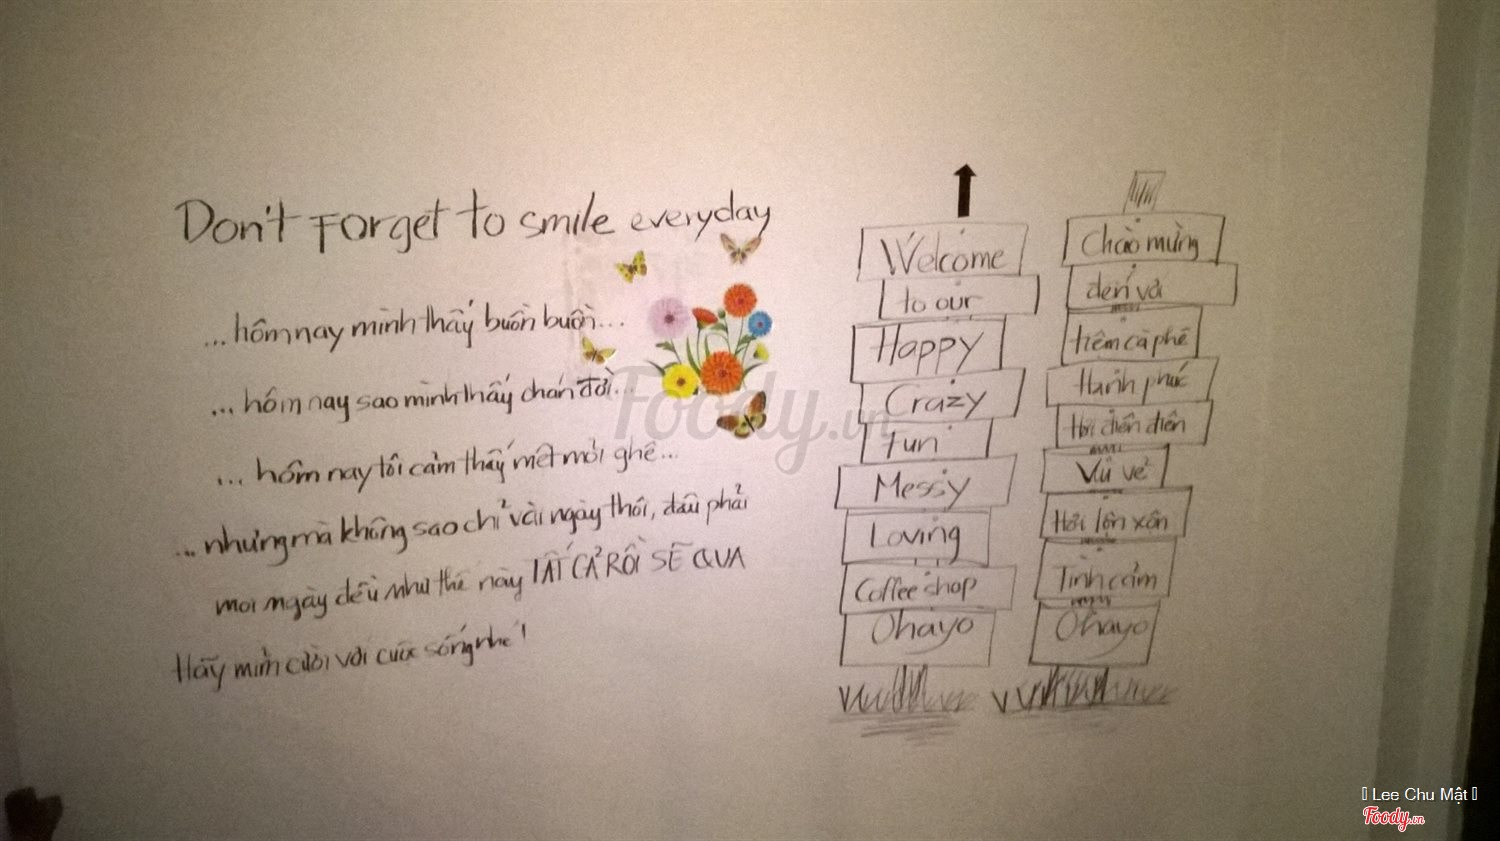 Don't Forget to smile everyday
... hôm nay mình thấy buồn buồn...
... hôm nay sao mình thấy chán đời...
... hôm nay tôi cảm thấy mệt mỏi ghê...
... nhưng mà không sao chỉ vài ngày thôi, đâu phải
mọi ngày đều như thế này TẤT CẢ RỒI SẼ QUA
Hãy mỉm cười với cuộc sống nhé!
Welcome
to our
Happy
Crazy
Fun
Messy
Loving
Coffee shop
Ohayo
Chào mừng
đến với
tiệm cà phê
Hạnh phúc
Hơi điên điên
Vui vẻ
Hơi lộn xộn
Tình cảm
Ohayo
Foody.vn
Lee Chu Mật
Foody.vn